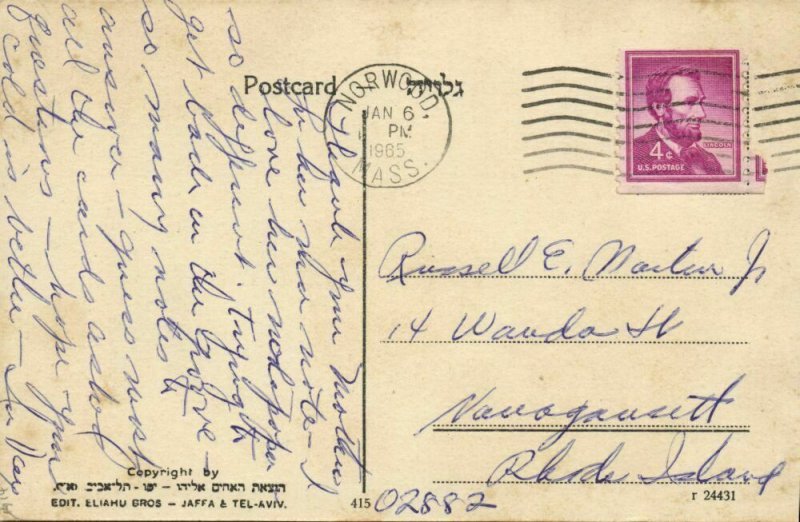 Postcard
גלויה
NORWOOD
JAN 6
PM
1965
MASS.
4¢
LINCOLN
U.S. POSTAGE
Thank your Mother
for her nice note - I
love her notepaper
so different. Trying to
get back in the groove -
so many notes to
answer - guess most
all the cards asked
questions - hope your
cold is better -
Russell E. Martin Jr
14 Wanda St
Narragansett
Rhode Island
02882
Copyright by
הוצאת האחים אליהו - יפו-תל-אביב
EDIT. ELIAHU BROS - JAFFA & TEL-AVIV.
415
r 24431